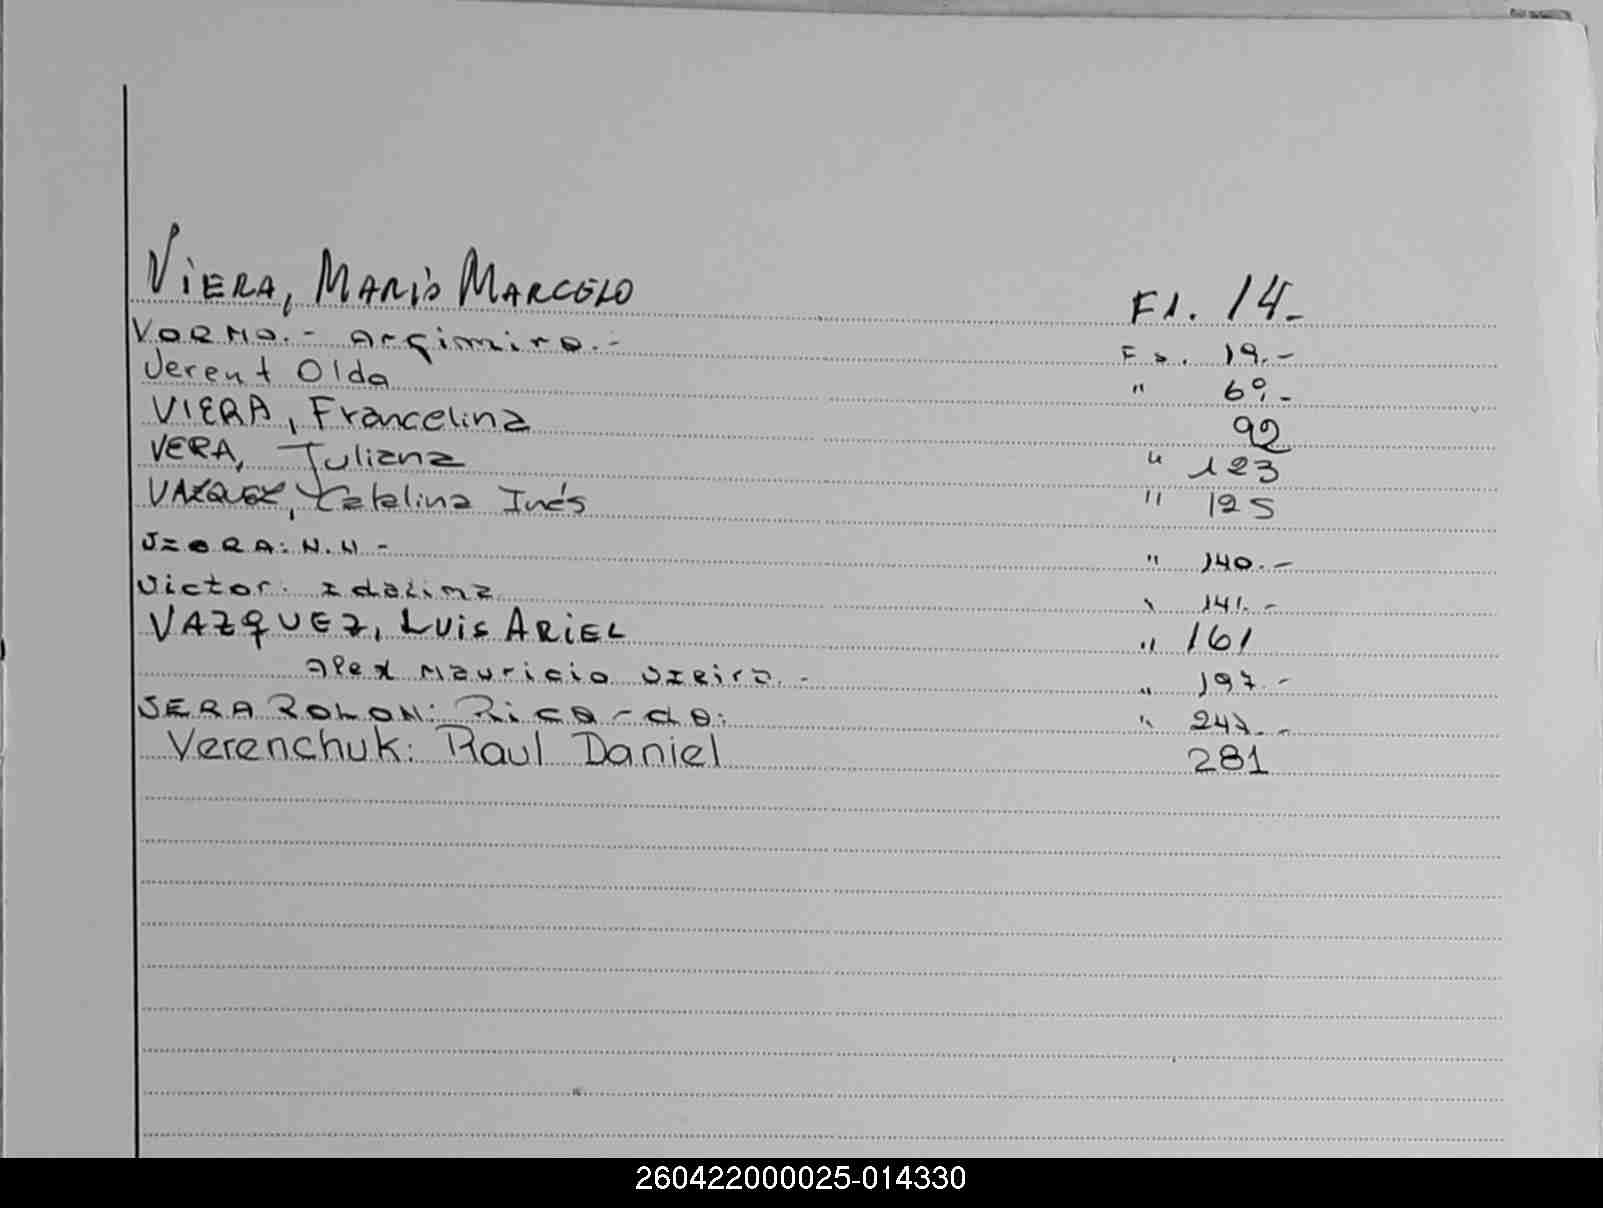 VIERA, MARIO MARCELO F1. 14.-
VORMO.- Argimiro.- Fs. 19.-
Verent Olda " 60.-
VIERA, Francelina 92
VERA, Juliana " 123
VAZQUEZ, Catalina Inés " 125
N.N - " 140.-
Victor: Idalina " 141.-
VAZQUEZ, LUIS ARIEL " 161
Alex Mauricio Vieira.- " 197.-
VERA ROLON: Ricardo: " 247.-
Verenchuk: Raul Daniel 281
260422000025-014330